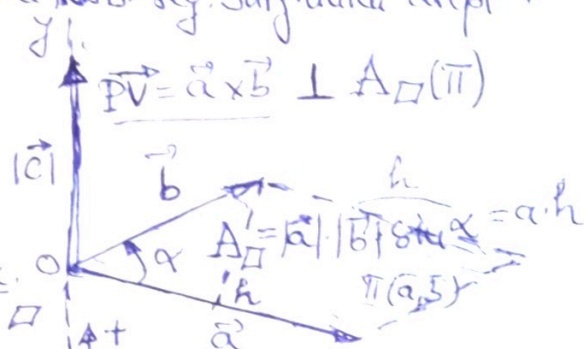 y
PV = a⃗ x b⃗ ⊥ A▱(π)
|c⃗|
b⃗
h
A▱ = |a⃗|·|b⃗| sin α = a·h
O
α
h
π(a,b)
▱
+
a⃗